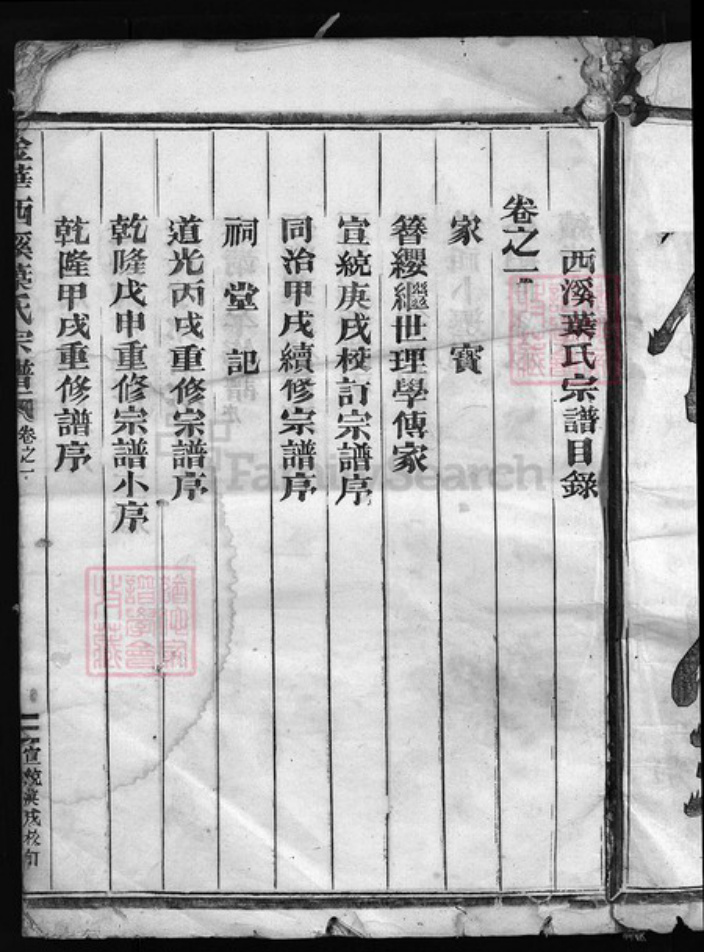 西溪葉氏宗譜目錄
卷之一
家寶
簪纓繼世理學傳家
宣統庚戌校訂宗譜序
同治甲戌續修宗譜序
祠堂記
道光丙戌重修宗譜序
乾隆戊申重修宗譜小序
乾隆甲戌重修譜序
金華西溪葉氏宗譜
卷之一
宣統庚戌校訂
FamilySearch